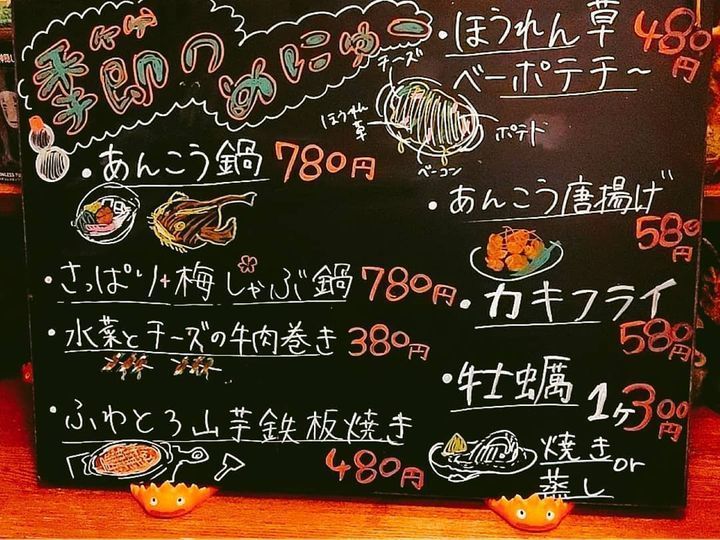 季節のめにゅー
・あんこう鍋 780円
・さっぱり梅しゃぶ鍋 780円
・水菜とチーズの牛肉巻き 380円
・ふわとろ山芋鉄板焼き
480円
・ほうれん草
ベーポテチ〜
480円
チーズ
ほうれん
草
ポテト
ベーコン
・あんこう唐揚げ
580円
・カキフライ
580円
・牡蠣 1ヶ300円
焼き or
蒸し